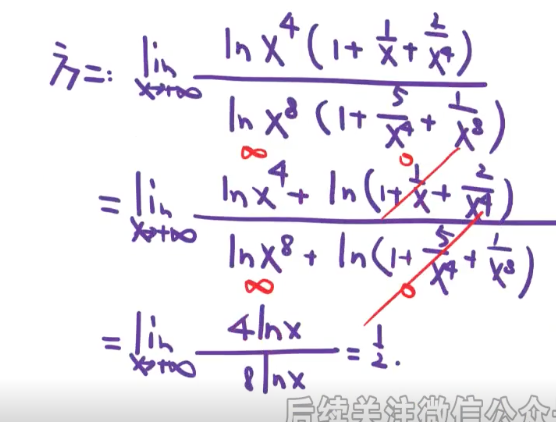 方二: lim x→+∞ ln x⁴(1+1/x+2/x⁴) / ln x⁸(1+5/x⁴+1/x⁸)
∞ 0
= lim x→+∞ ln x⁴ + ln(1+1/x+2/x⁴) / ln x⁸ + ln(1+5/x⁴+1/x⁸)
∞ 0
= lim x→+∞ 4lnx / 8lnx = 1/2.
后续关注微信公众